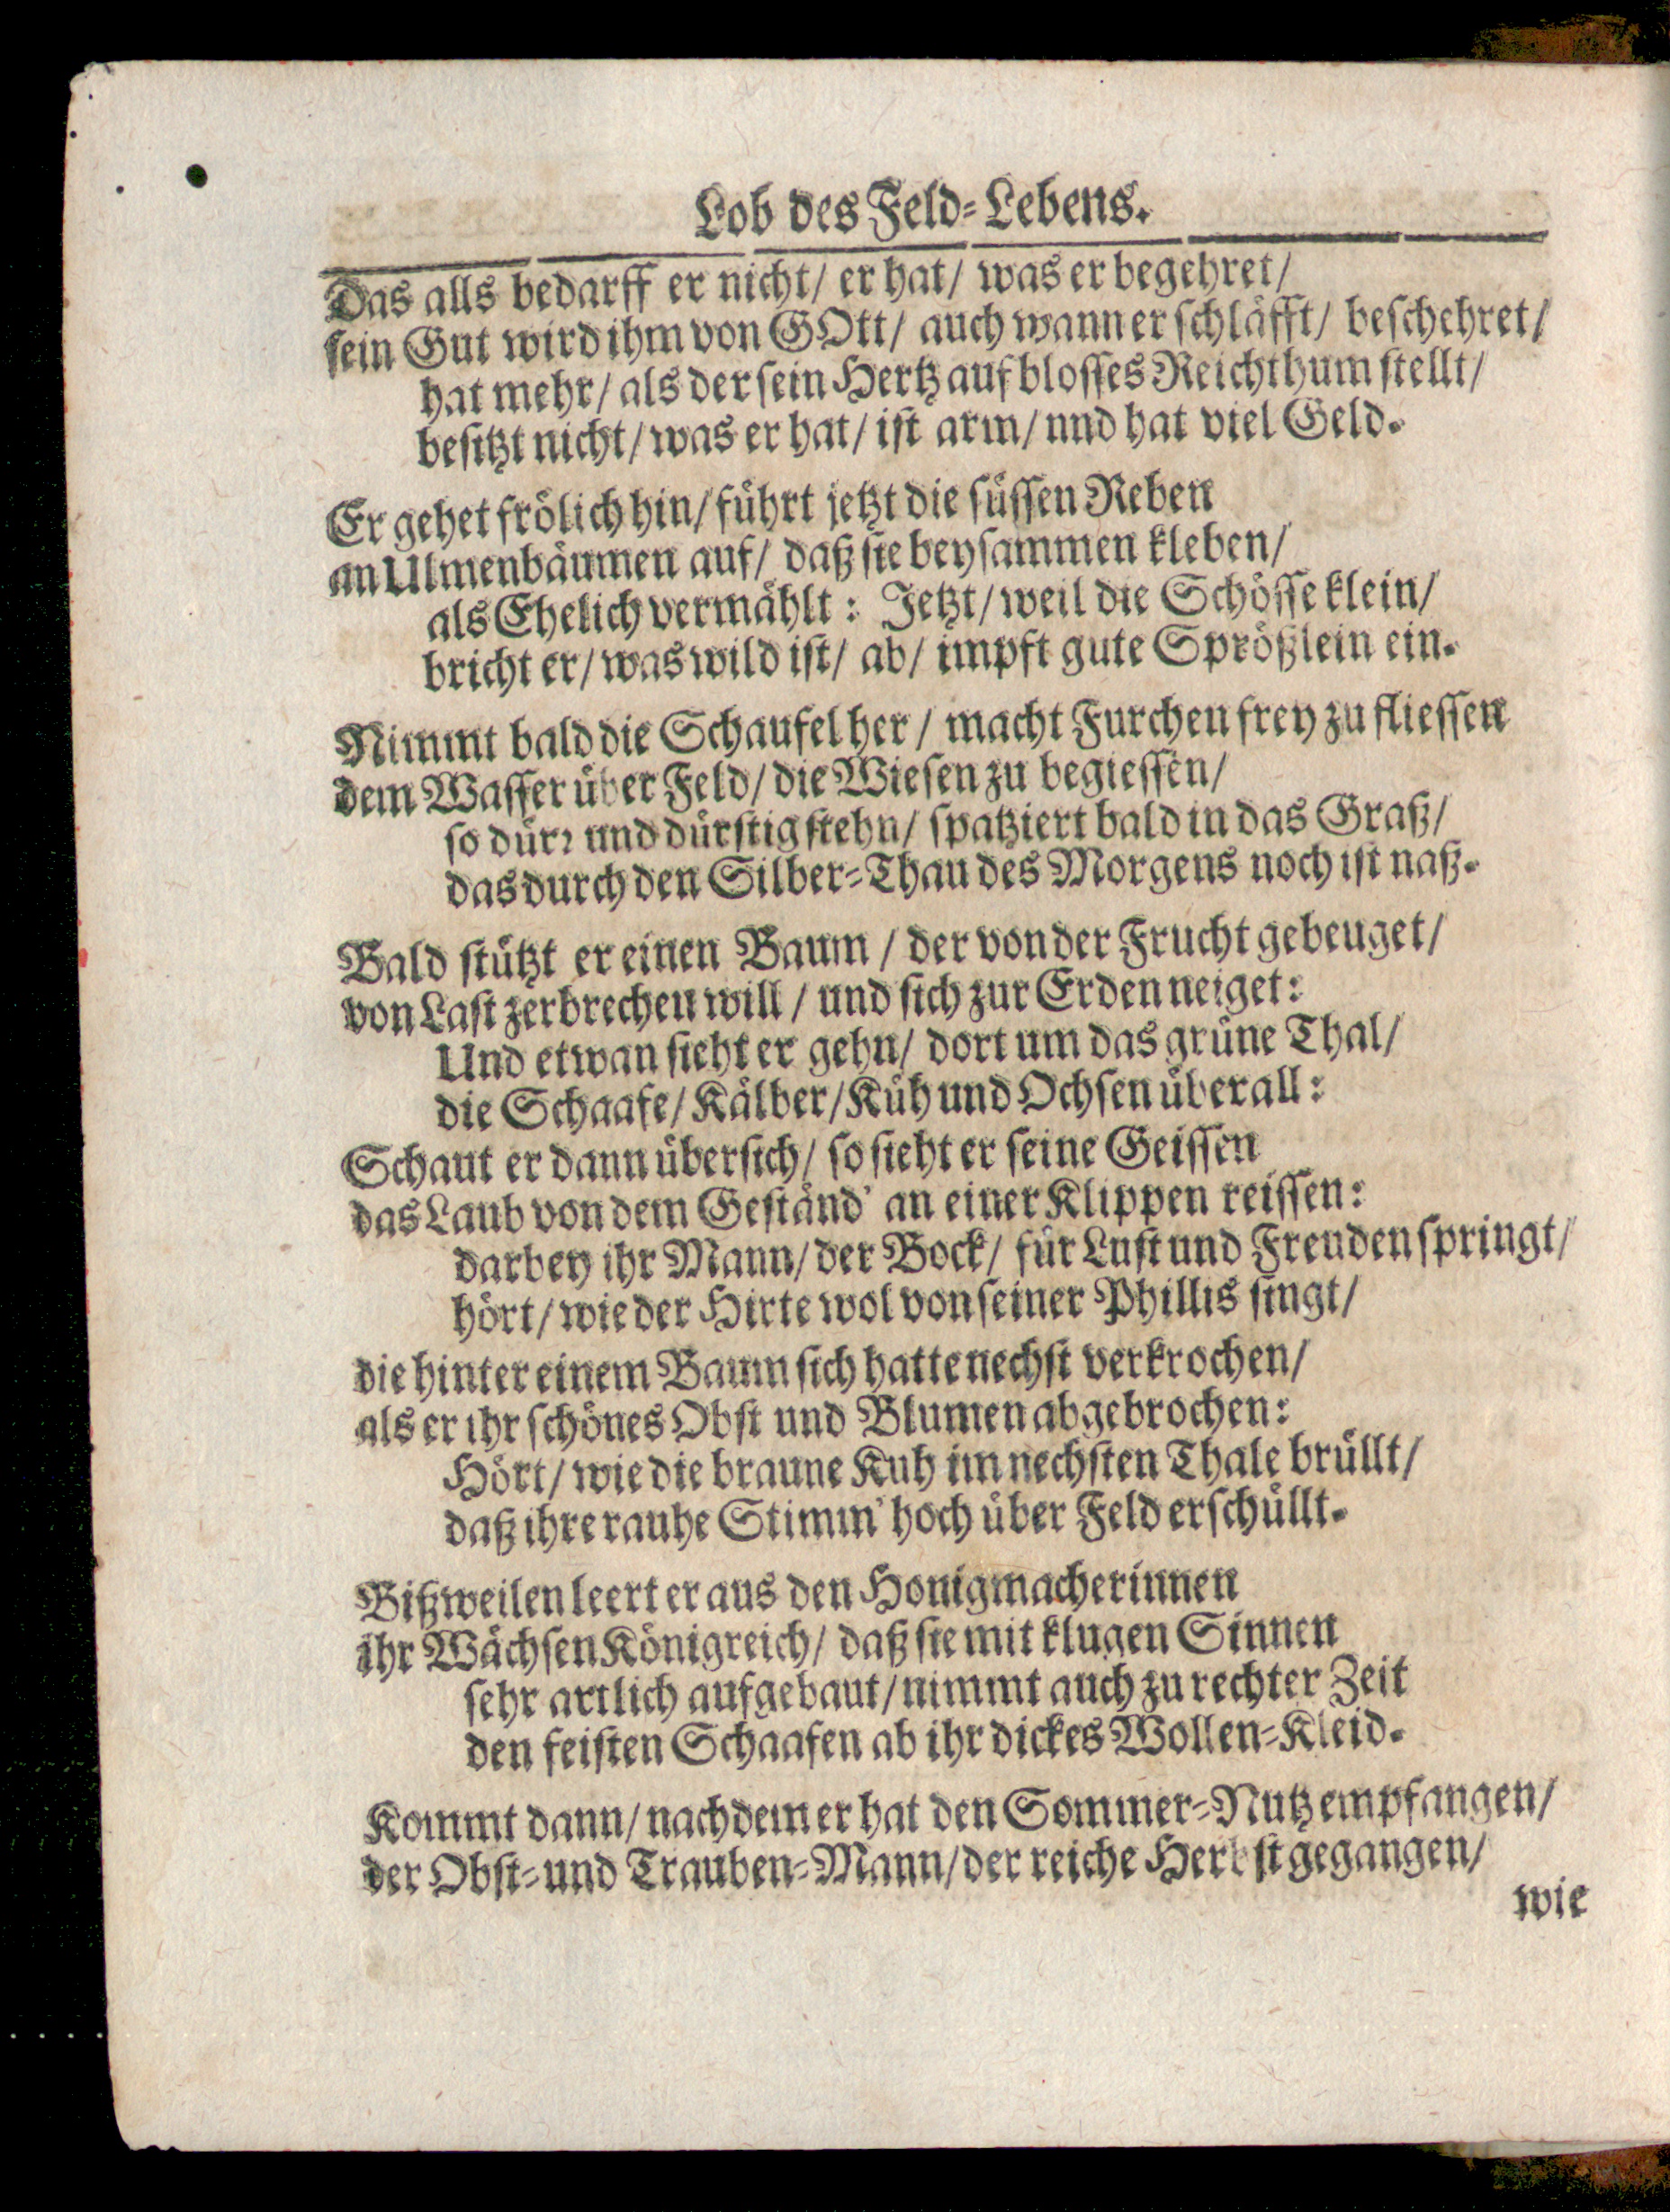 Lob des Feld-Lebens.
Das alls bedarff er nicht/ er hat/ was er begehret/
sein Gut wird ihm von GOtt/ auch wann er schläfft/ beschehret/
hat mehr/ als der sein Hertz auf blosses Reichthum stellt/
besitzt nicht/ was er hat/ ist arm/ und hat viel Geld.
Er gehet frölich hin/ führt jetzt die süssen Reben
an Ulmenbäumen auf/ daß sie beysammen kleben/
als Ehelich vermählt: Jetzt/ weil die Schösse klein/
bricht er/ was wild ist/ ab/ impft gute Sprößlein ein.
Nimmt bald die Schaufel her/ macht Furchen frey zu fliessen
dem Wasser über Feld/ die Wiesen zu begiessen/
so dürr und dürstig stehn/ spatziert bald in das Graß/
das durch den Silber-Thau des Morgens noch ist naß.
Bald stützt er einen Baum/ der von der Frucht gebeuget/
von Last zerbrechen will/ und sich zur Erden neiget:
Und etwan sieht er gehn/ dort um das grüne Thal/
die Schaafe/ Kälber/ Küh und Ochsen überall:
Schaut er dann übersich/ so sieht er seine Geissen
das Laub von dem Geständ' an einer Klippen reissen:
darbey ihr Mann/ der Bock/ für Lust und Freuden springt/
hört/ wie der Hirte wol von seiner Phillis singt/
die hinter einem Baum sich hatte nechst verkrochen/
als er ihr schönes Obst und Blumen abgebrochen:
Hört/ wie die braune Kuh im nechsten Thale brüllt/
daß ihre rauhe Stimm' hoch über Feld erschüllt.
Bißweilen leert er aus den Honigmacherinnen
ihr Wächsen Königreich/ daß sie mit klugen Sinnen
sehr artlich aufgebaut/ nimmt auch zu rechter Zeit
den feisten Schaafen ab ihr dickes Wollen-Kleid.
Kommt dann/ nachdem er hat den Sommer-Nutz empfangen/
der Obst- und Trauben-Mann/ der reiche Herbst gegangen/
wie